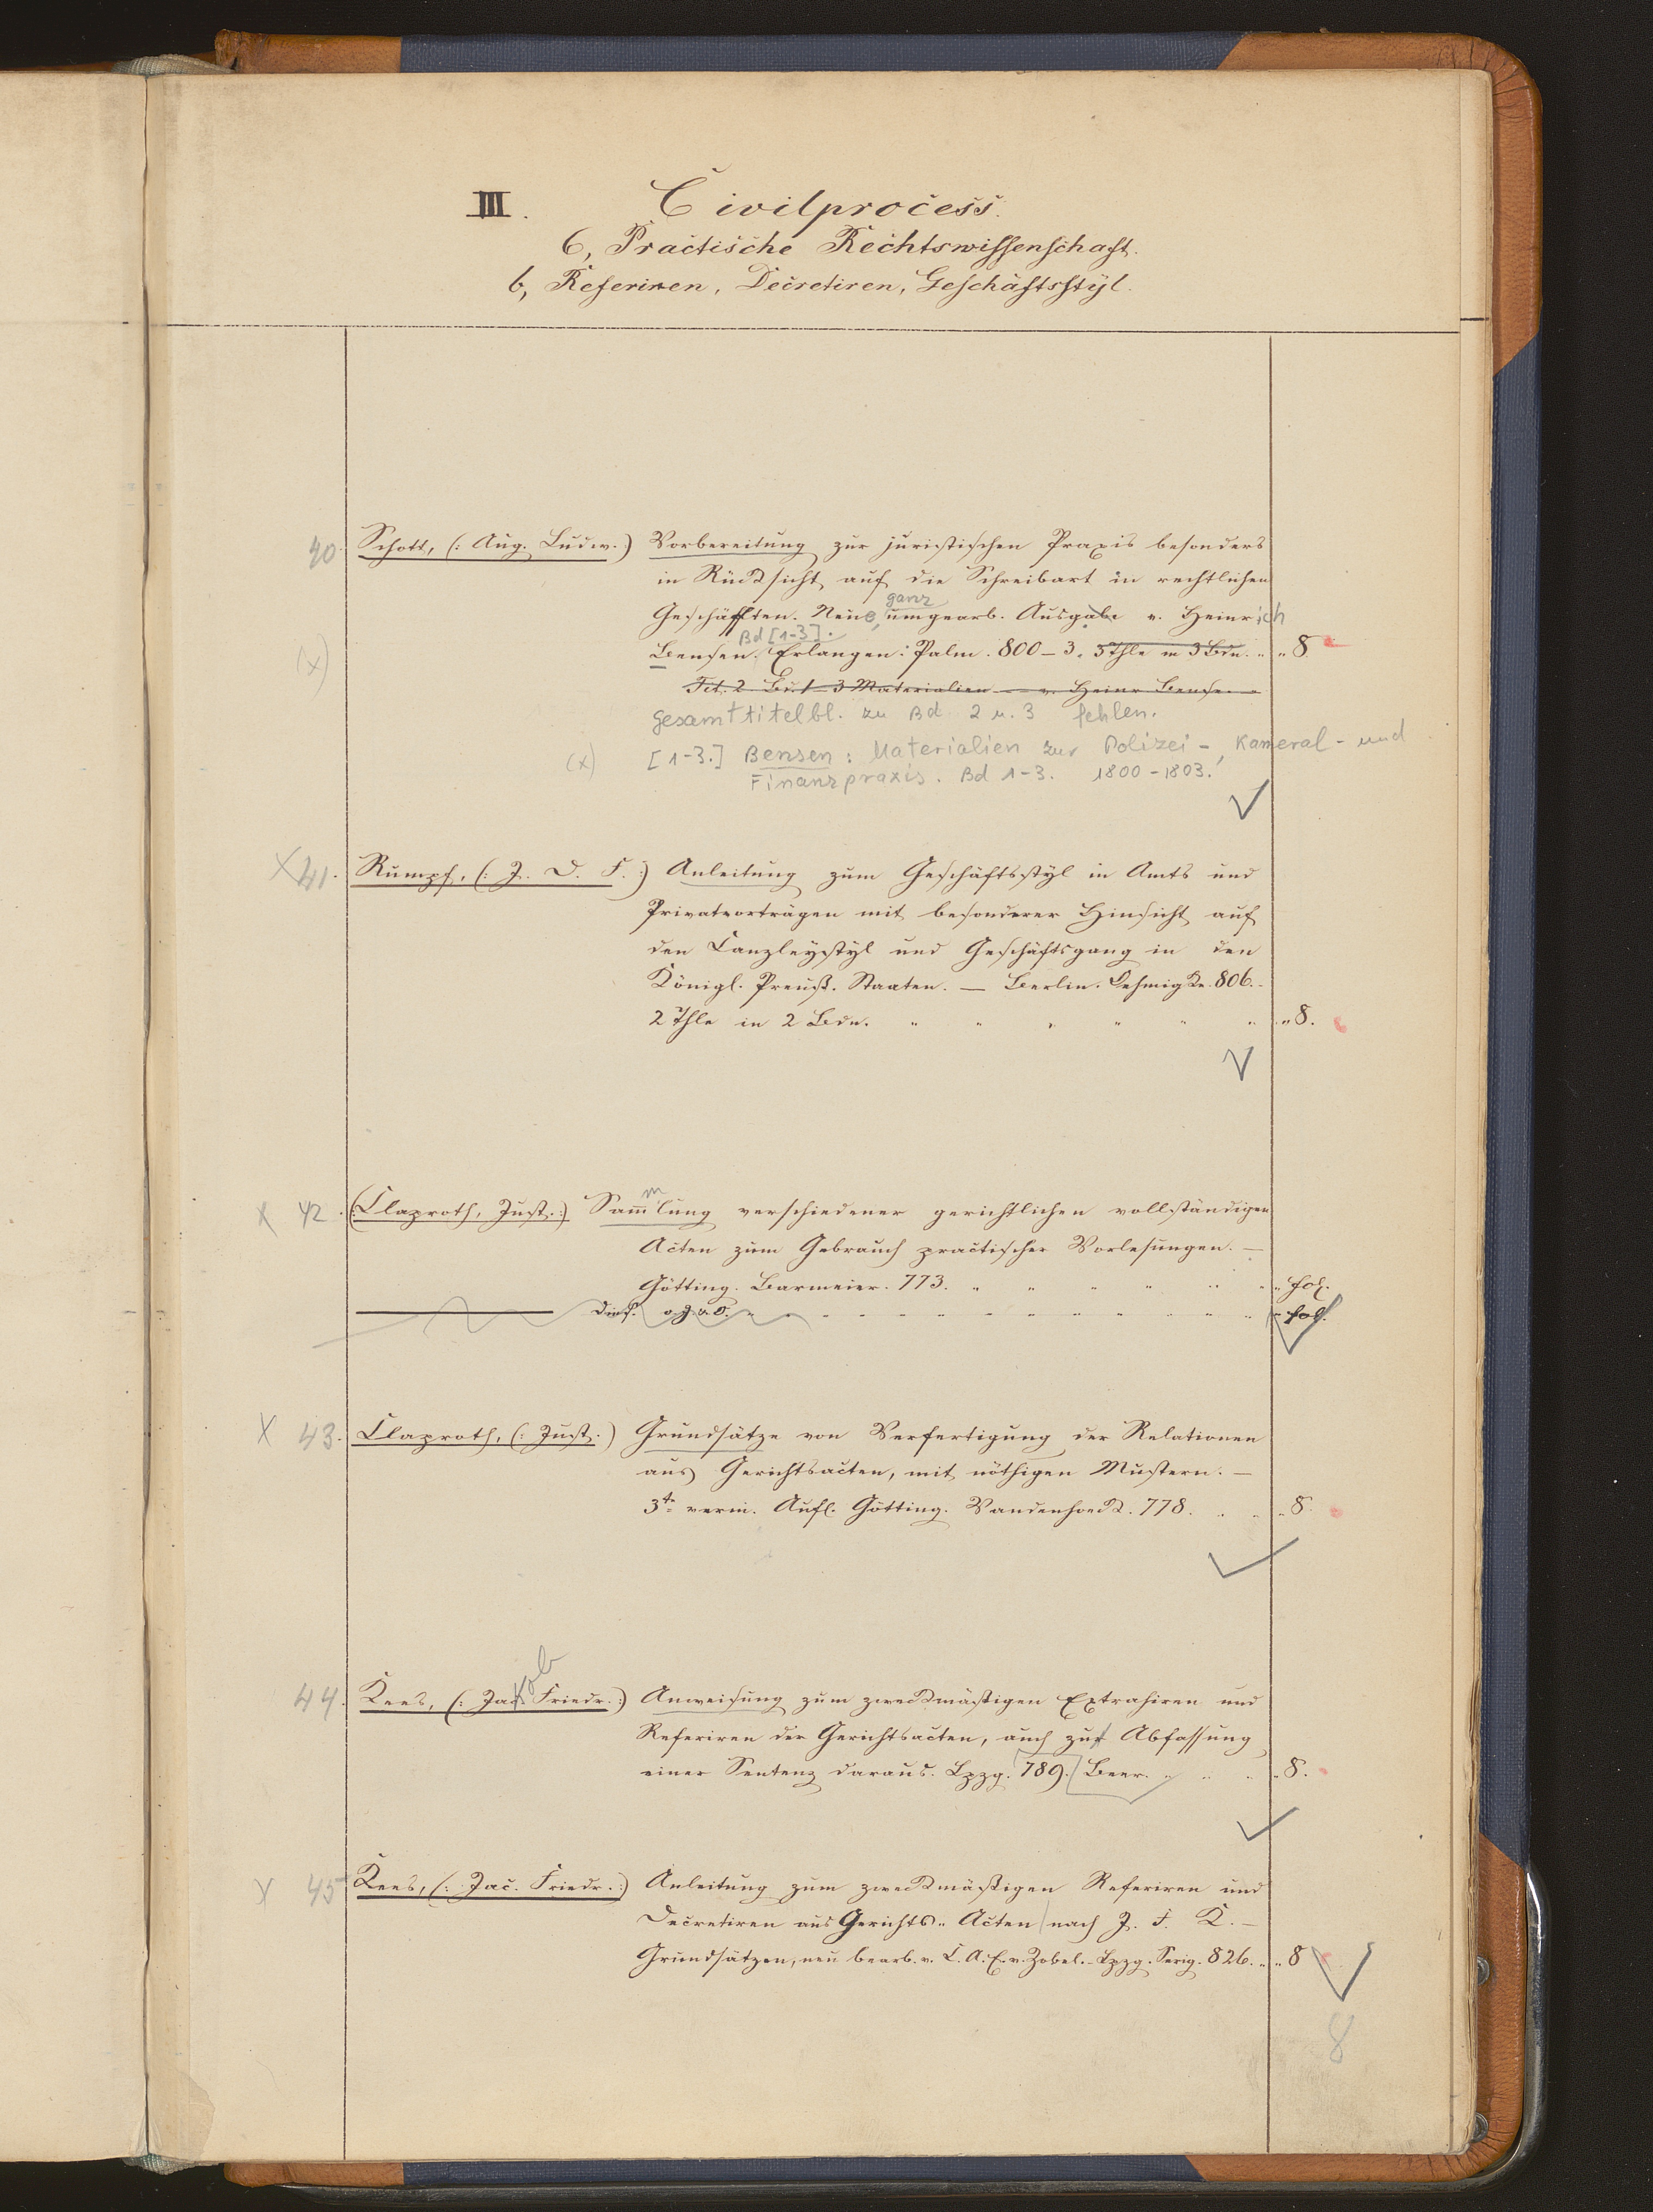 III. Civilprocess.
6, Practische Rechtswissenschaft.
b, Referiren, Decretiren, Geschäftsstyl.
40. Schott, (: Aug. Ludw. :) Vorbereitung zur juristischen Praxis besonders
in Rücksicht auf die Schreibart in rechtlichen
ganz
Geschäfften. Neue, umgearb. Ausgabe v. Heinrich
Bd [1-3].
(x) Bensen. Erlangen: Palm. 800-3. 3 Thle in 3 Bdn. " " 8.
Tit. 2. Bd. 1-3 Materialien — v. Heinr Bensen
Gesamttitelbl. zu Bd 2 u. 3 fehlen.
(x) [1-3.] Bensen: Materialien zur Polizei-, Kameral- und
Finanzpraxis. Bd 1-3. 1800-1803.
X 41. Rumpf, (: J. D. F. :) Anleitung zum Geschäftsstyl in Amts und
Privatvorträgen mit besonderer Hinsicht auf
den Canzleystyl und Geschäftsgang in den
Königl. Preuß. Staaten. — Berlin. Oehmigke. 806.
2 Thle in 2 Bdn. " " " " " " " 8.
m
X 42. (: Claproth, Just. :) Sam̄lung verschiedener gerichtlichen vollständigen
Acten zum Gebrauch practischer Vorlesungen. —
Götting. Barmeier. 773. " " " " " " " fol.
——— Dies. o. J. u. O. " " " " " " " fol.
X 43. Claproth, (: Just. :) Grundsätze von Verfertigung der Relationen
aus Gerichtsacten, mit nöthigen Mustern. —
3te verm. Aufl. Götting. Vandenhoeck. 778. " " " 8.
ob
44. Kees, (: Jac. Friedr. :) Anweisung zum zweckmäßigen Extrahiren und
Referiren der Gerichtsacten, auch zur Abfassung
einer Sentenz daraus. Lpzg. 789. Beer. " " " " 8.
X 45 Kees, (: Jac. Friedr. :) Anleitung zum zweckmäßigen Referiren und
Decretiren aus Gerichts-Acten nach J. F. K. —
Grundsätzen, neu bearb. v. C. A. E. v. Zobel. - Lpzg. Serig. 826. " " 8
8